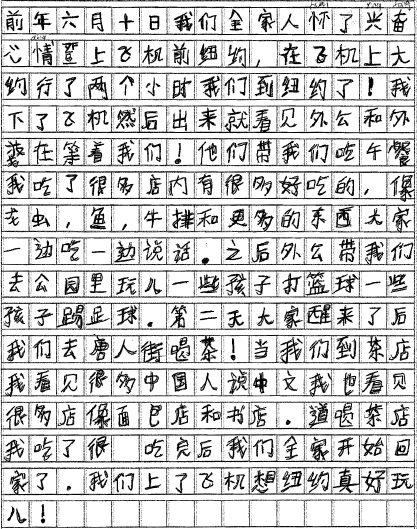 前年六月十日我们全家人怀了兴奋
心情登上飞机前纽约，在飞机上大
约行了两个小时我们到纽约了！我
下了飞机然后出来就看见外公和外
婆在等着我们！他们带我们吃午餐
我吃了很多店内有很多好吃的，像
龙虫，鱼，牛排和更多的东西大家
一边吃一边说话。之后外公带我们
去公园里玩儿一些孩子打篮球一些
孩子踢足球．第二天大家醒来了后
我们去唐人街喝茶！当我们到茶店
我看见很多中国人说中文我也看见
很多店像面包店和书店．道喝茶店
我吃了很 吃完后我们全家开始回
家了．我们上了飞机想纽约真好玩
儿！